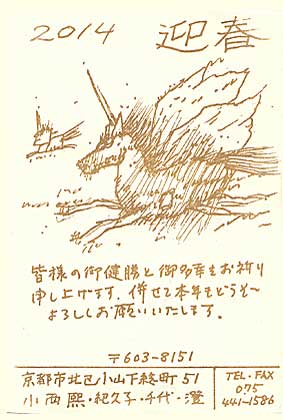 2014 迎春
皆様の御健勝と御多幸をお祈り
申し上げます。併せて本年もどうぞ
よろしくお願いいたします。
〒603-8151
京都市北区小山下総町51
小西熙・紀久子・千代・澄
TEL・FAX
075
441-1586